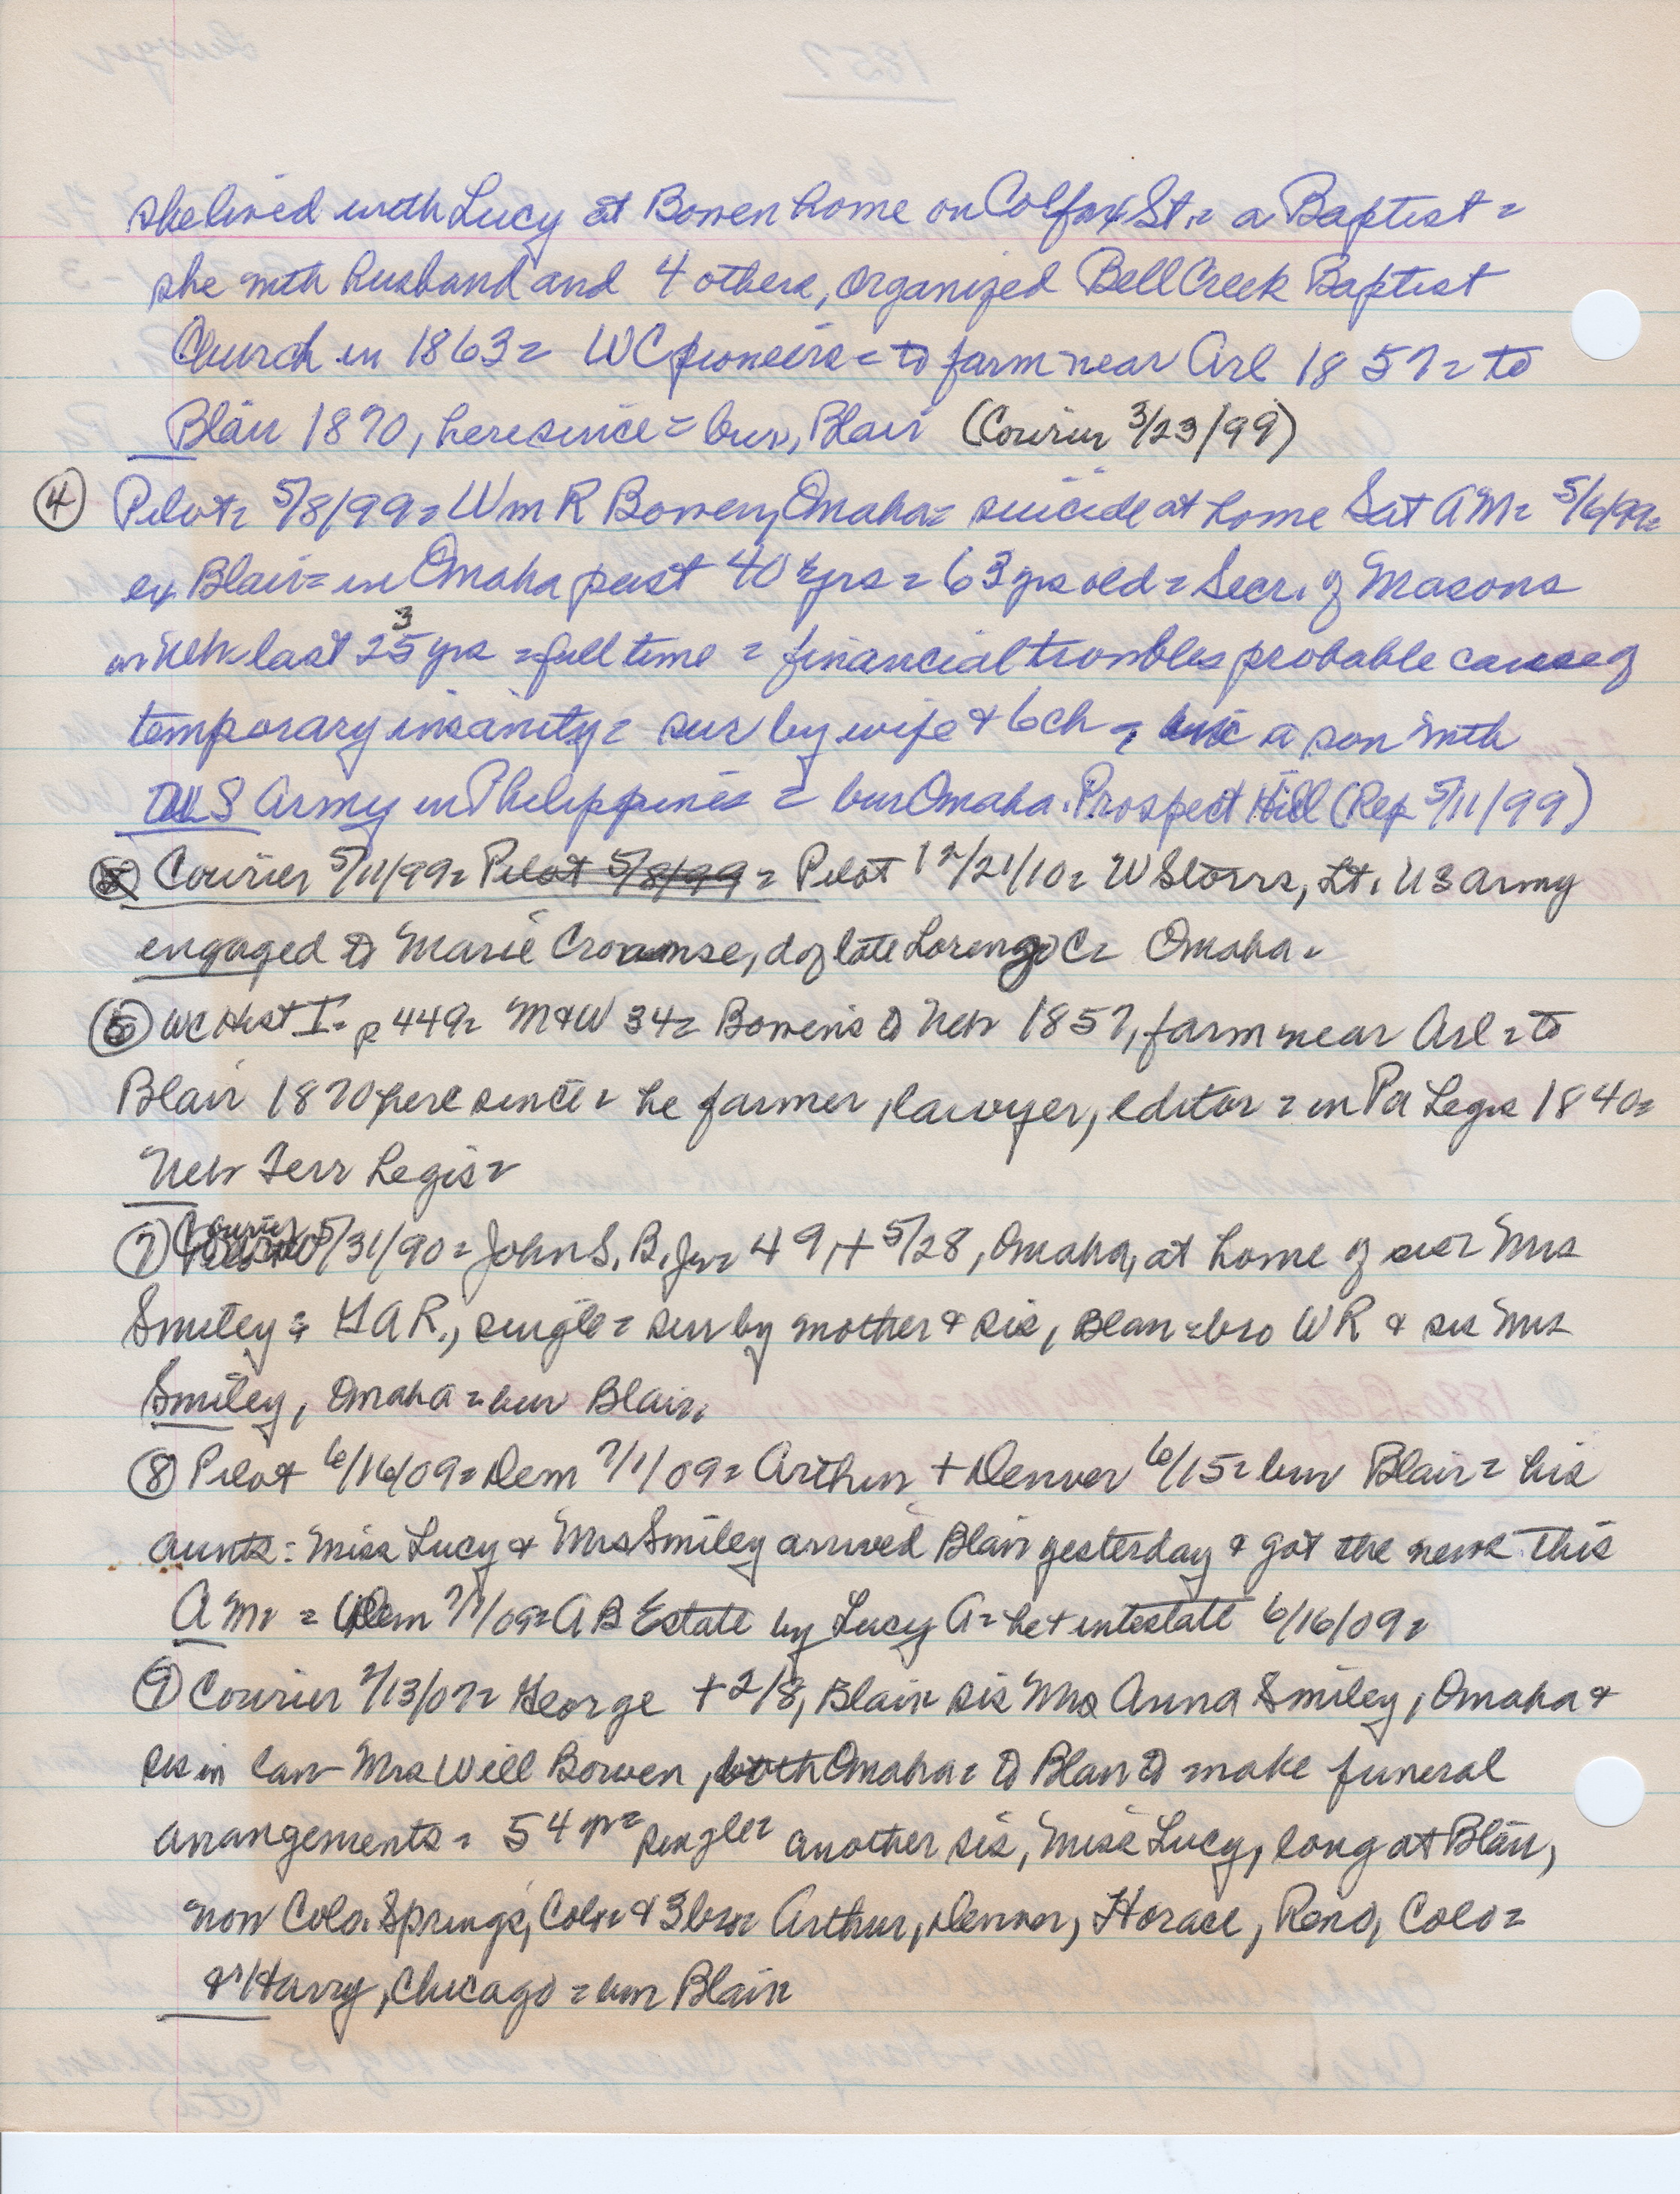 she lived with Lucy at Bowen home on Colfax St. = a Baptist =
she with husband and 4 others, organized Bell Creek Baptist
Church in 1863 = WC pioneers = to farm near Arl 1857 = to
Blair 1870, here since = bur, Blair (Courier 3/23/99)
④ Pilot = 5/8/99 = Wm R Bowen, Omaha = suicide at home Sat AM = 5/6/99 =
ex Blair = in Omaha past 40 yrs = 63 yrs old = Secr. of Masons
in Neb last 25 3 yrs = full time = financial troubles probable cause of
temporary insanity = sur by wife & 6 ch = inc a son with
US Army in Philippines = bur Omaha. Prospect Hill (Rep 5/11/99)
⑤ Courier 5/11/99 = Pilot 5/8/99 = Pilot 12/21/10 = W Storrs, Lt. US Army
engaged to Marie Crounse, d of late Lorenzo C = Omaha =
⑥ WC Hist I = p 449 = M&W 34 = Bowens to Neb 1857, farm near Arl = to
Blair 1870 here since = he farmer, lawyer, editor = in Pa Legis 1840 =
Neb Terr Legis =
⑦ Courier 5/31/90 = John S. B. Jr = 49, + 5/28, Omaha, at home of sis = Mrs
Smiley = GAR., single = sur by mother & sis, Blair = bro WR & sis Mrs
Smiley, Omaha = bur Blair,
⑧ Pilot 6/16/09 = Dem 7/1/09 = Arthur + Denver 6/15 = bur Blair = his
aunts: Miss Lucy & Mrs Smiley arrived Blair yesterday & got the news this
AM. = Dem 7/1/09 = AB Estate by Lucy A = he + intestate 6/16/09 =
⑨ Courier 2/13/07 = George + 2/8, Blair = sis Mrs Anna Smiley, Omaha &
sis in law Mrs Will Bowen, both Omaha = to Blair to make funeral
arrangements = 54 yr = single = another sis, Miss Lucy, long at Blair,
now Colo. Springs, Colo = & 3 bro = Arthur, Denver, Horace, Reno, Colo =
& Harry, Chicago = bur Blair